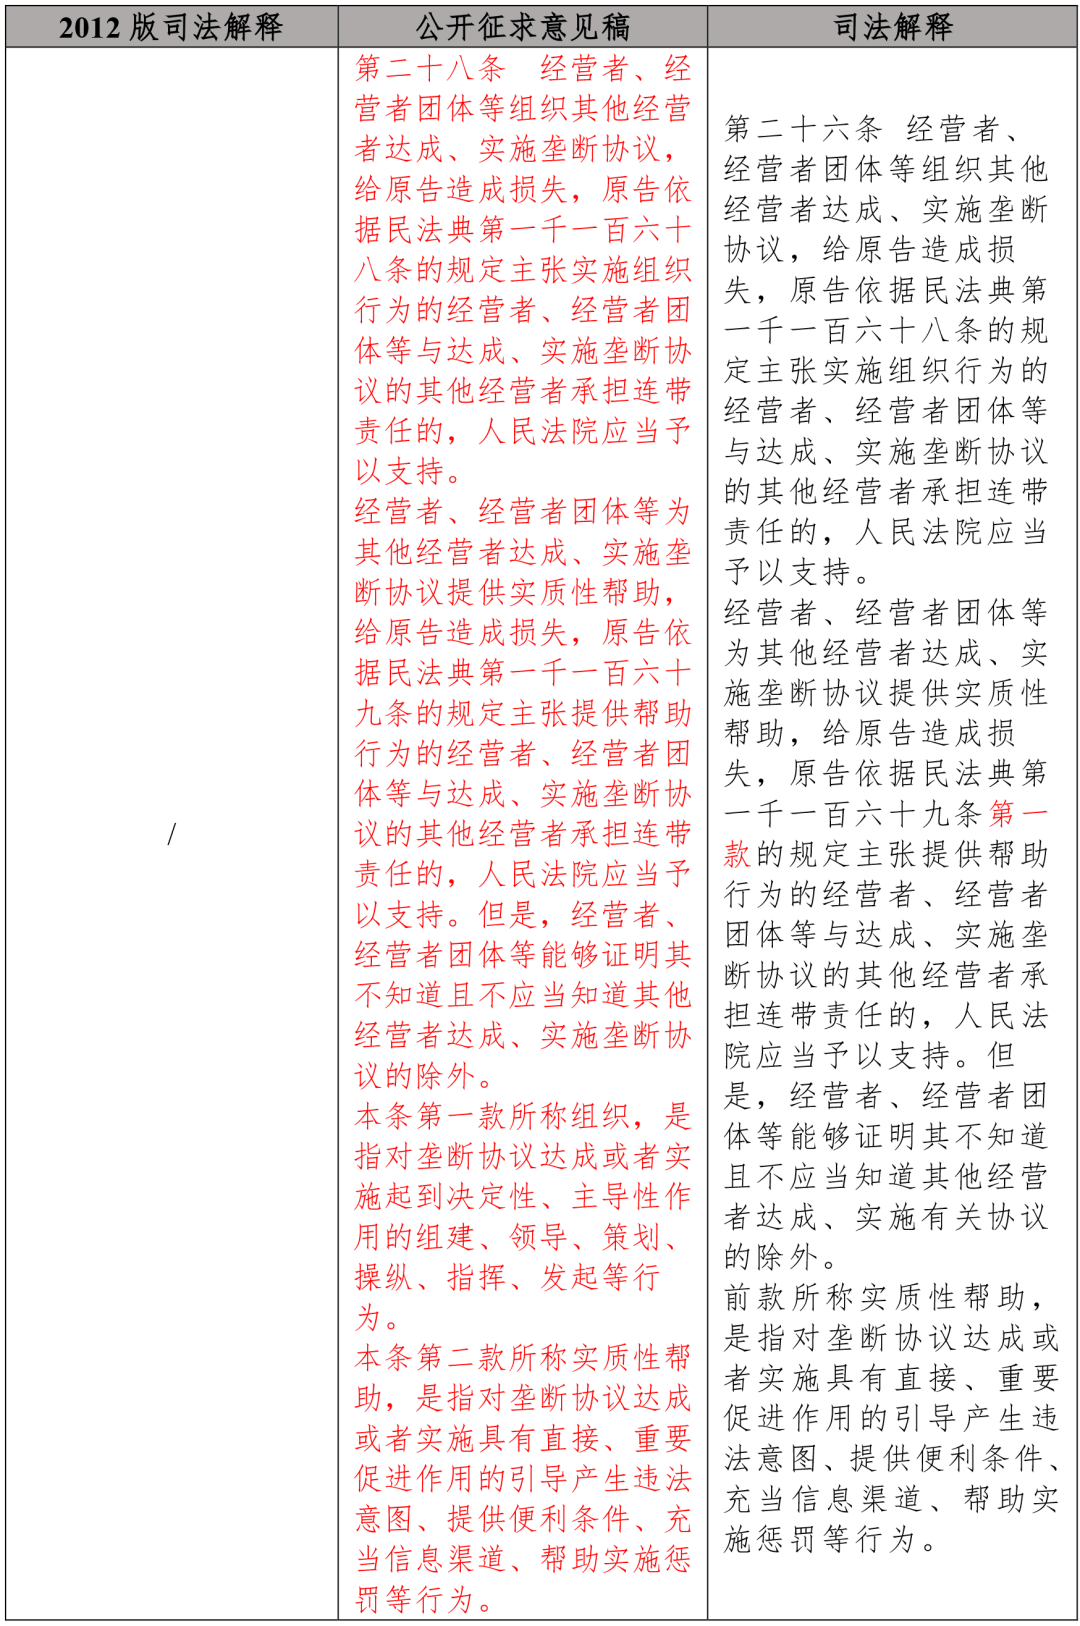 2012 版司法解释
公开征求意见稿
司法解释
/
第二十八条 经营者、经
营者团体等组织其他经营
者达成、实施垄断协议，
给原告造成损失，原告依
据民法典第一千一百六十
八条的规定主张实施组织
行为的经营者、经营者团
体等与达成、实施垄断协
议的其他经营者承担连带
责任的，人民法院应当予
以支持。
经营者、经营者团体等为
其他经营者达成、实施垄
断协议提供实质性帮助，
给原告造成损失，原告依
据民法典第一千一百六十
九条的规定主张提供帮助
行为的经营者、经营者团
体等与达成、实施垄断协
议的其他经营者承担连带
责任的，人民法院应当予
以支持。但是，经营者、
经营者团体等能够证明其
不知道且不应当知道其他
经营者达成、实施垄断协
议的除外。
本条第一款所称组织，是
指对垄断协议达成或者实
施起到决定性、主导性作
用的组建、领导、策划、
操纵、指挥、发起等行
为。
本条第二款所称实质性帮
助，是指对垄断协议达成
或者实施具有直接、重要
促进作用的引导产生违法
意图、提供便利条件、充
当信息渠道、帮助实施惩
罚等行为。
第二十六条 经营者、
经营者团体等组织其他
经营者达成、实施垄断
协议，给原告造成损
失，原告依据民法典第
一千一百六十八条的规
定主张实施组织行为的
经营者、经营者团体等
与达成、实施垄断协议
的其他经营者承担连带
责任的，人民法院应当
予以支持。
经营者、经营者团体等
为其他经营者达成、实
施垄断协议提供实质性
帮助，给原告造成损
失，原告依据民法典第
一千一百六十九条第一
款的规定主张提供帮助
行为的经营者、经营者
团体等与达成、实施垄
断协议的其他经营者承
担连带责任的，人民法
院应当予以支持。但
是，经营者、经营者团
体等能够证明其不知道
且不应当知道其他经营
者达成、实施有关协议
的除外。
前款所称实质性帮助，
是指对垄断协议达成或
者实施具有直接、重要
促进作用的引导产生违
法意图、提供便利条件、
充当信息渠道、帮助实
施惩罚等行为。